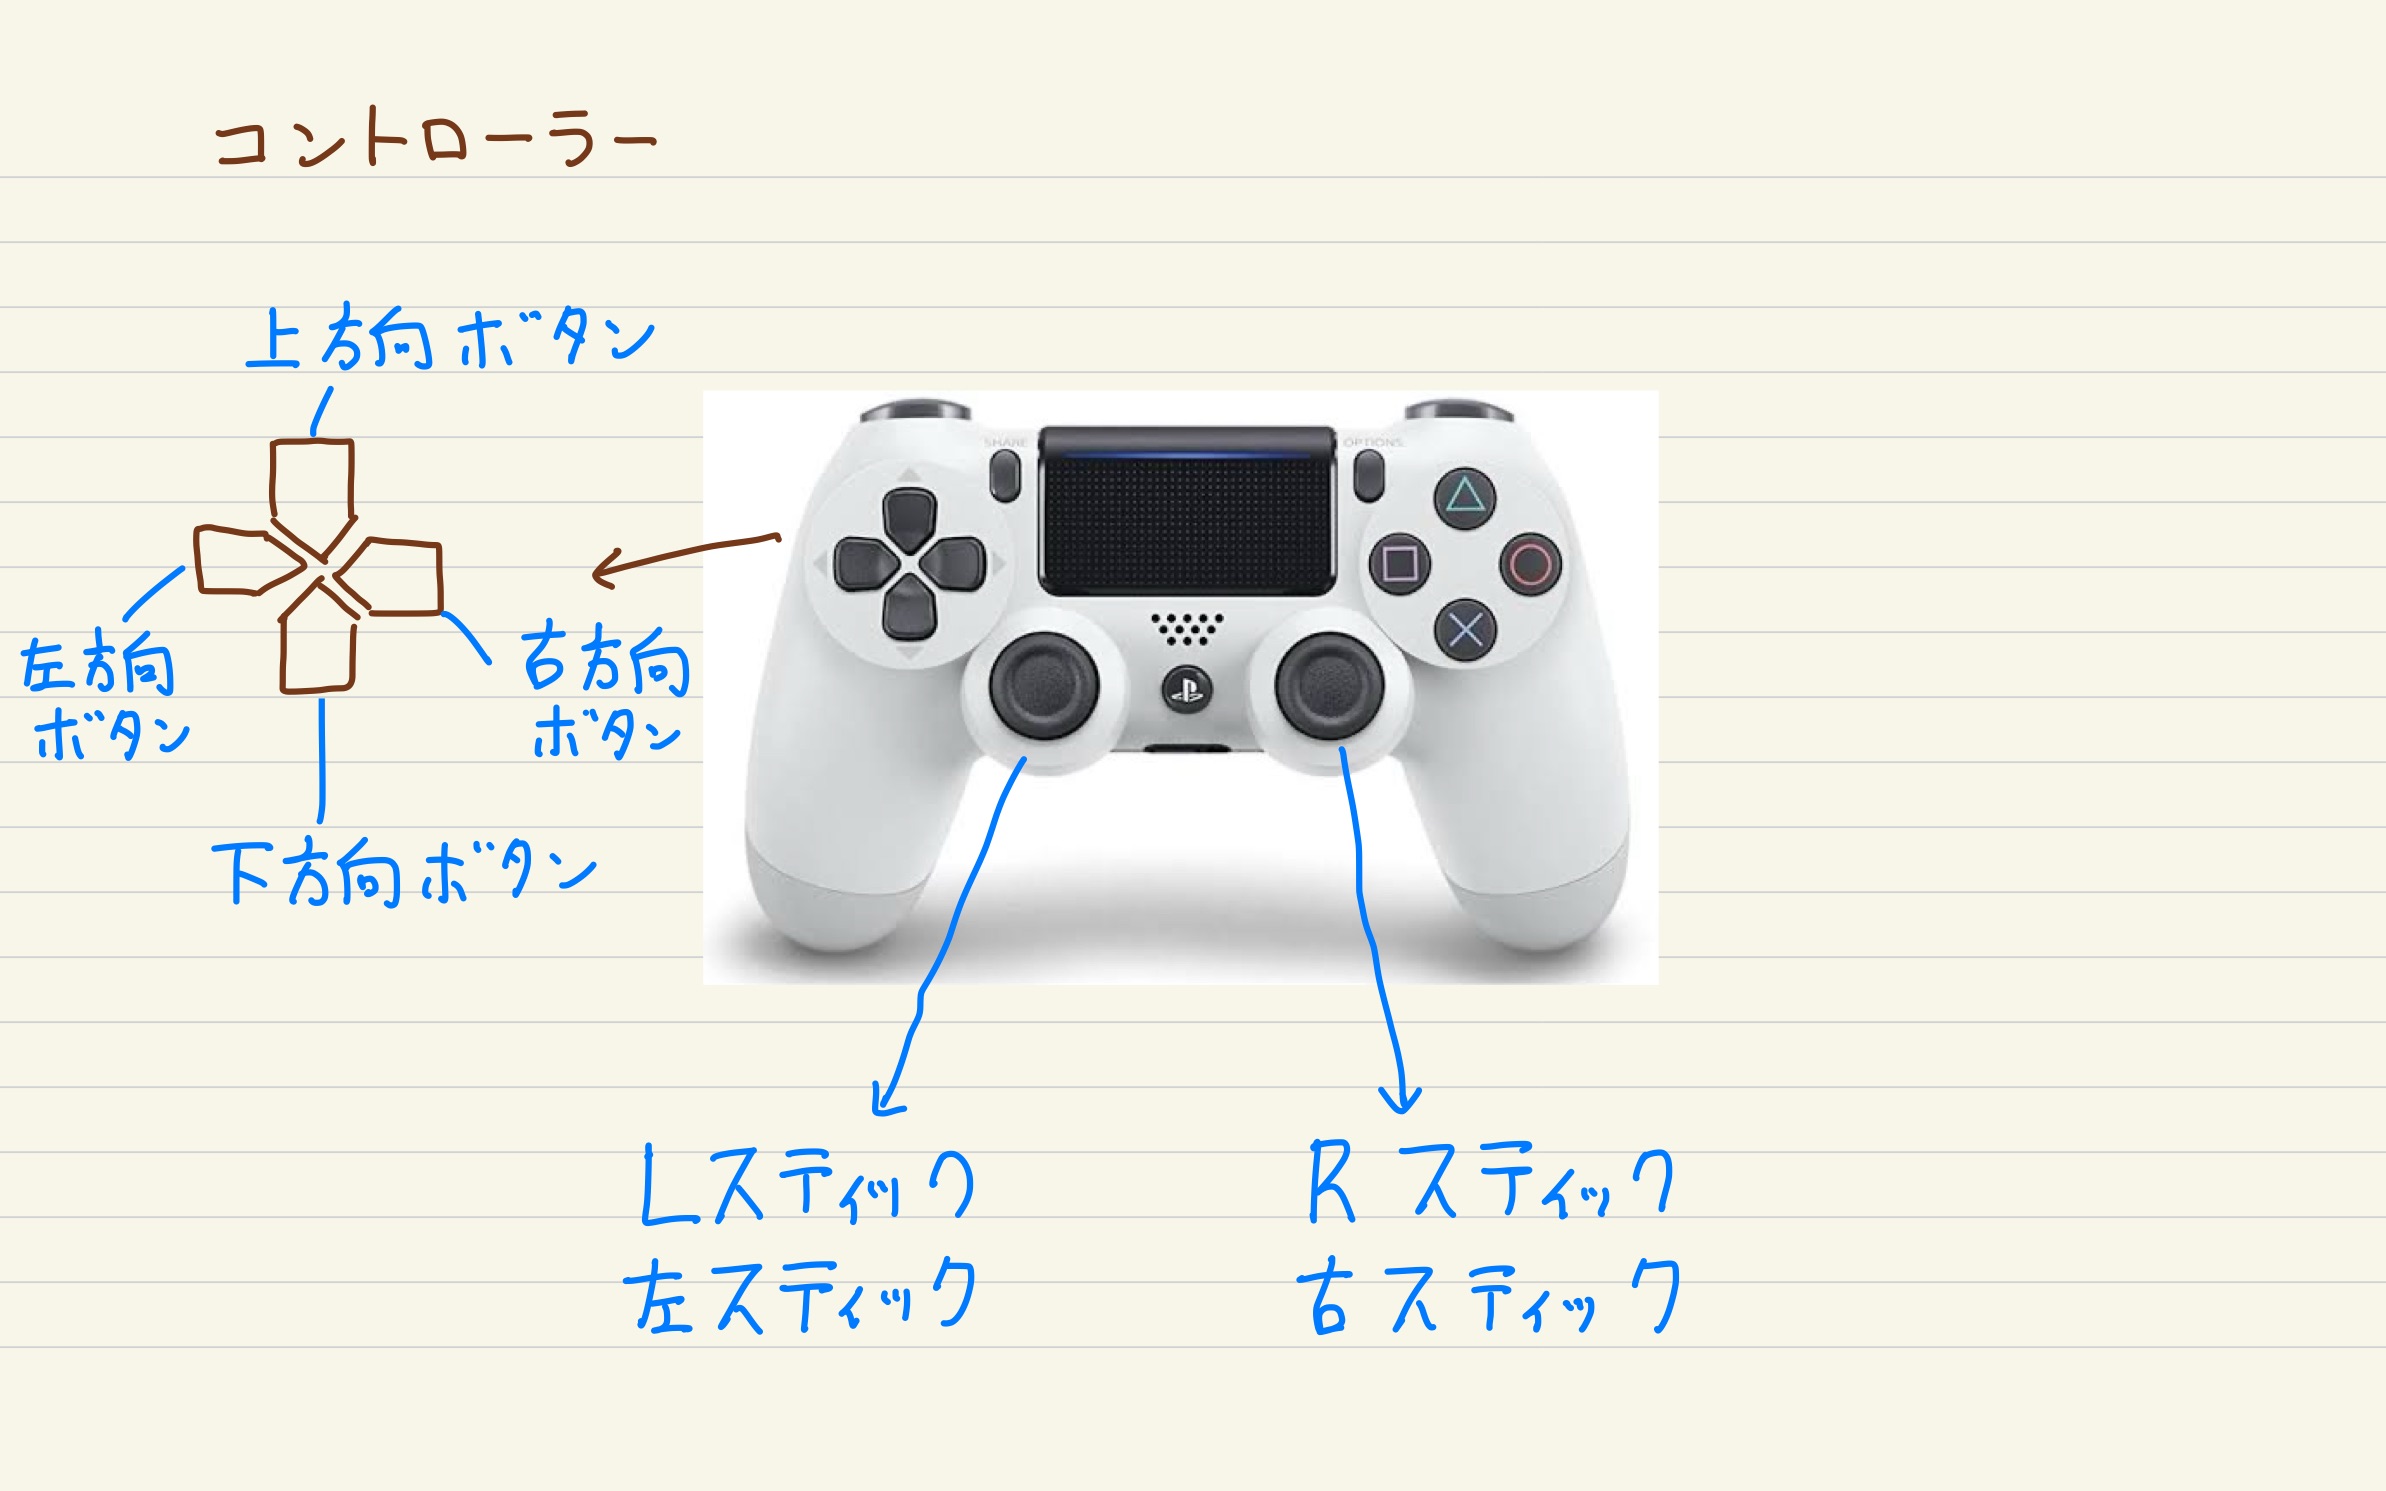 コントローラー
上方向ボタン
左方向
ボタン
右方向
ボタン
下方向ボタン
SHARE
OPTIONS
Lスティック
左スティック
Rスティック
右スティック